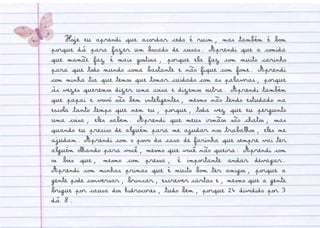 Hoje eu aprendi que acordar cedo é ruim, mas também é bom
porque dá para fazer um bocado de coisas. Aprendi que a comida
que mamãe faz é mais gostosa, porque ela faz com muito carinho
para que todo mundo coma bastante e não fique com fome. Aprendi
com minha tia que temos que tomar cuidado com as palavras, porque
às vezes queremos dizer uma coisa e dizemos outra. Aprendi também
que papai e vovô são bem inteligentes, mesmo não tendo estudado na
escola tanto tempo que nem eu, porque, toda vez que eu pergunto
uma coisa, eles sabem. Aprendi que meus irmãos são chatos, mas
quando eu preciso de alguém para me ajudar nos trabalhos, eles me
ajudam. Aprendi com o povo da casa de farinha que sempre vai ter
alguém olhando para você, mesmo que você não queira. Aprendi com
os bois que, mesmo com pressa, é importante andar devagar.
Aprendi com minhas primas que é muito bom ter amigos, porque a
gente pode conversar, brincar, escrever cartas e, mesmo que a gente
brigue por causa dos hidrocores, tudo bem, porque 24 dividido por 3
dá 8.